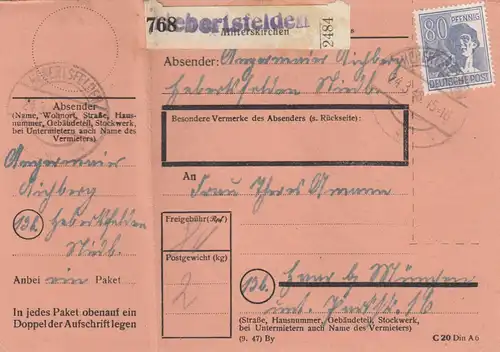 768
Hebertsfelden
Mitterskirchen
2484
80 PFENNIG
DEUTSCHE POST
HEBERTSFELDEN
Absender
(Name, Wohnort, Straße, Haus-
nummer, Gebäudeteil, Stockwerk,
bei Untermietern auch Name des
Vermieters)
Angermaier
Aichberg
13b Hebertsfelden
Ndb.
Anbei ein Paket
In jedes Paket obenauf ein
Doppel der Aufschrift legen
Absender: Angermaier Aichberg
Hebertsfelden Ndb.
Besondere Vermerke des Absenders (s. Rückseite):
An
Frau Theres Ammann
Freigebühr (Rpf)
80
Postgewicht (kg)
2
13b Haar b. München
(Straße, Hausnummer, Gebäudeteil, Stockwerk,
bei Untermietern auch Name des Vermieters)
(9. 47) By
C 20 Din A 6